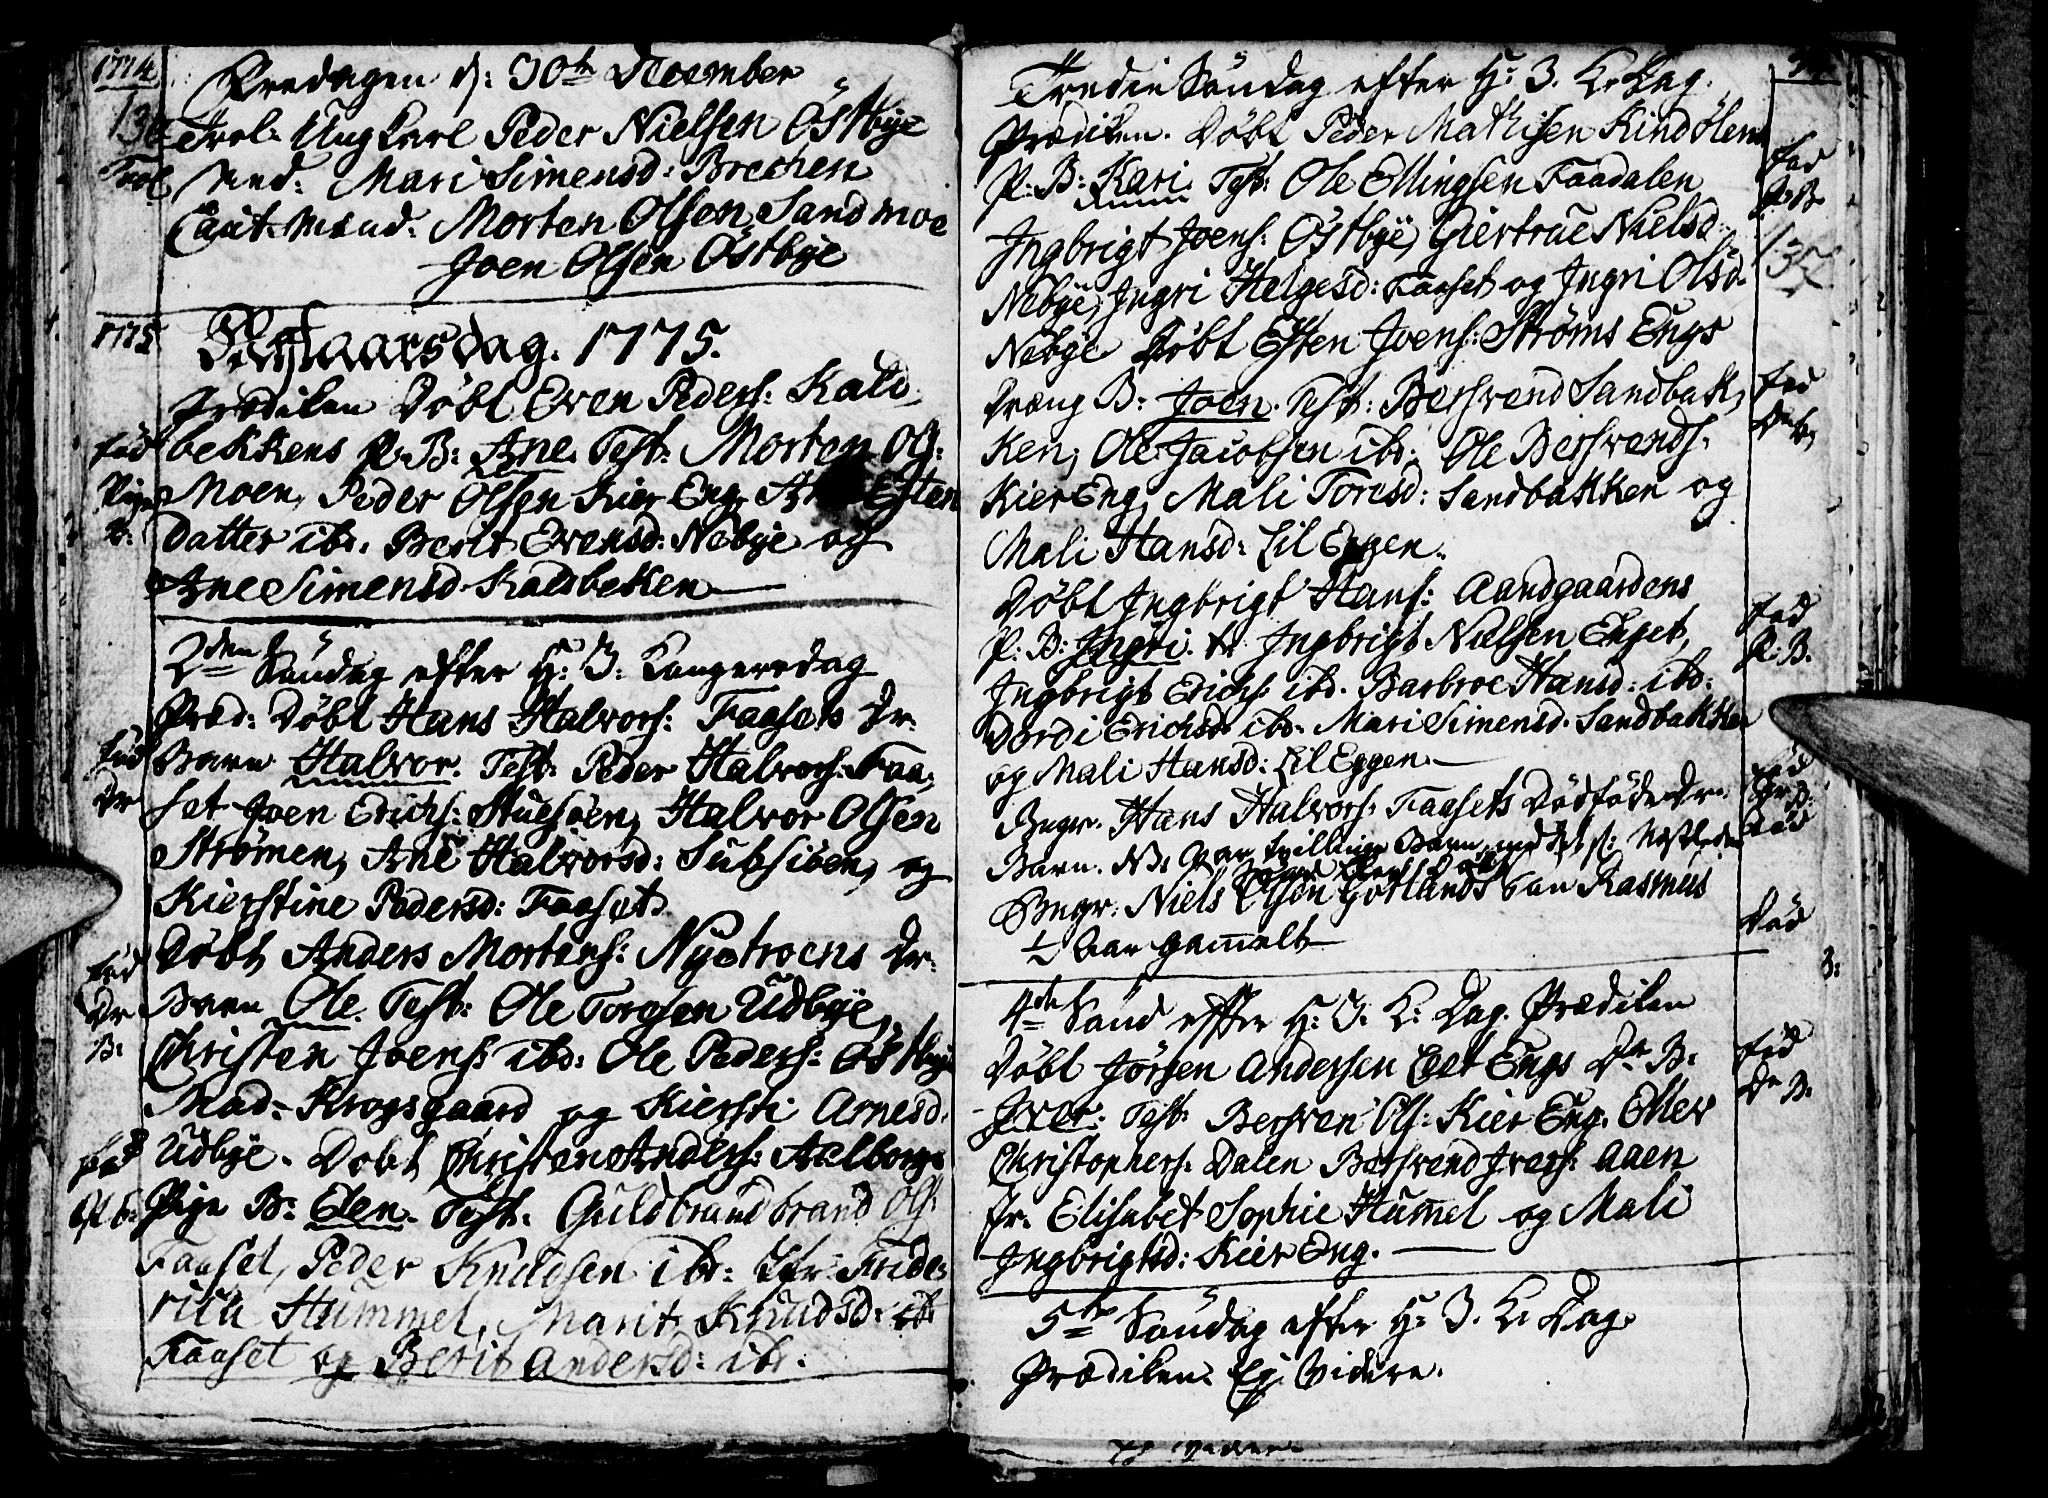 1774
Fredagen d: 30te December
130
Trol: Ungkarl Peder Nielsen Östbye
Trol
Med: Mari Simensd: Brechen
Caut. Mænd: Morten Olsen Sandmoe
Joen Olsen Östbye
1775
Nytaarsdag. 1775.
Prædiken Döbt Even Peders: Kald
bekkens P. B: Ane. Test: Morten Ols:
Föd
Moen, Peder Olsen Kier Eng, Esten
Pige
datter ibd. Berit Evensd: Nebye og
B:
Ane Simensd Kaldbekken
2den Söndag efter H: 3. Kongersdag
Præd: Döbt Hans Halvors: Faasets Dr.
Föd
Barn Halvor. Test: Peder Halvors: Faa,
Dr
set Joen Erichs: Stuesöen, Halvor Olsen
Strömen, Ane Halvorsd: Subsiöen, og
Kierstine Pedersd: Faaset.
Döbt Anders Mortens: Nystroens Dr:
Föd
Barn Ole. Test: Ole Torgsen Udbye,
Dr
B:
Christen Joens: ibd: Ole Peders: Östbye
Mad- Krogsgaard og Kiersti Arnesd.
Udbye. Döbt Christen Anders: Aalborgs
Föd
Pige B: Elen. Test: Guldbrand brand Ols:
Faaset, Peder Knudsen ibd: Jfr: Fride,
rica Hummel, Marit Knudsd: ibd
Faaset og Berit Andersd: ibd.
Tredie Söndag efter H: 3. K. Dag.
Prædiken. Döbt Peder Mathisen Kindölens
Föd
P: B: Kari. Test: Ole Ellingsen Faadalen
P. B.
Ingbrigt Joens: Östbye, Giertrue Nielsd:
135
Nebye, Ingri Helgesd: Faaset og Ingri Olsd.
Nebye Döbt Esten Joens: Ströms Engs
Dreng B: Joen. Test: Bersvend Sandbak,
Föd
ken, Ole Jacobsen ibd. Ole Bersvends.
Kier Eng, Mali Toresd: Sandbakken og
Mali Hansd: Lil Eggen.
Döbt Ingbrigt Hans: Aandgaardens
Föd
P: B: Ingri. t: Ingbrigt Nielsen Enget,
P: B.
Ingbrigt Erichs: ibd. Barbroe Hansd: ibd:
Dordi Erichsd: ibd. Mari Simensd. Sandbakken
og Mali Hansd: Lil Eggen.
Föd
Begr. Hans Halvors: Faasets Dödfödde Dr.
Dr: B:
Död
Barn. NB: Var Tvillinge Barn, med det
Begr: Niels Elsön Gotlands Sön Rasmus
Död
1/2 Aar gamelt
3:
4de Sönd efter H: 3. K: Dag. Prædiken
Döbt Jörgen Andersen Engs Dr. B.
Föd
Dr B.
Iver: Test: Bersven Ols: Kier Eng. Ellev
Christophers: Dalen Bersvend Ivers: Aaen
Jr. Elisabet Sophie Hummel og Mali
Ingbrigtsd: Kier Eng.
5te Söndag efter H: 3. K. Dag.
Prædiken. Ej Videre.